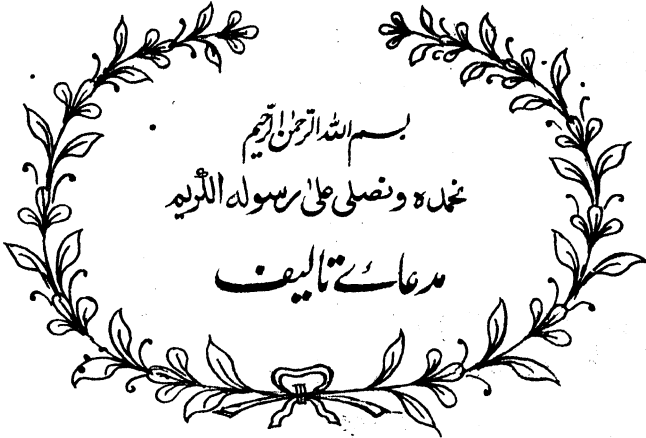 بسم اللہ الرحمٰن الرحیم
نحمدہ و نصلی علیٰ رسولہ الکریم
مدعائے تالیف